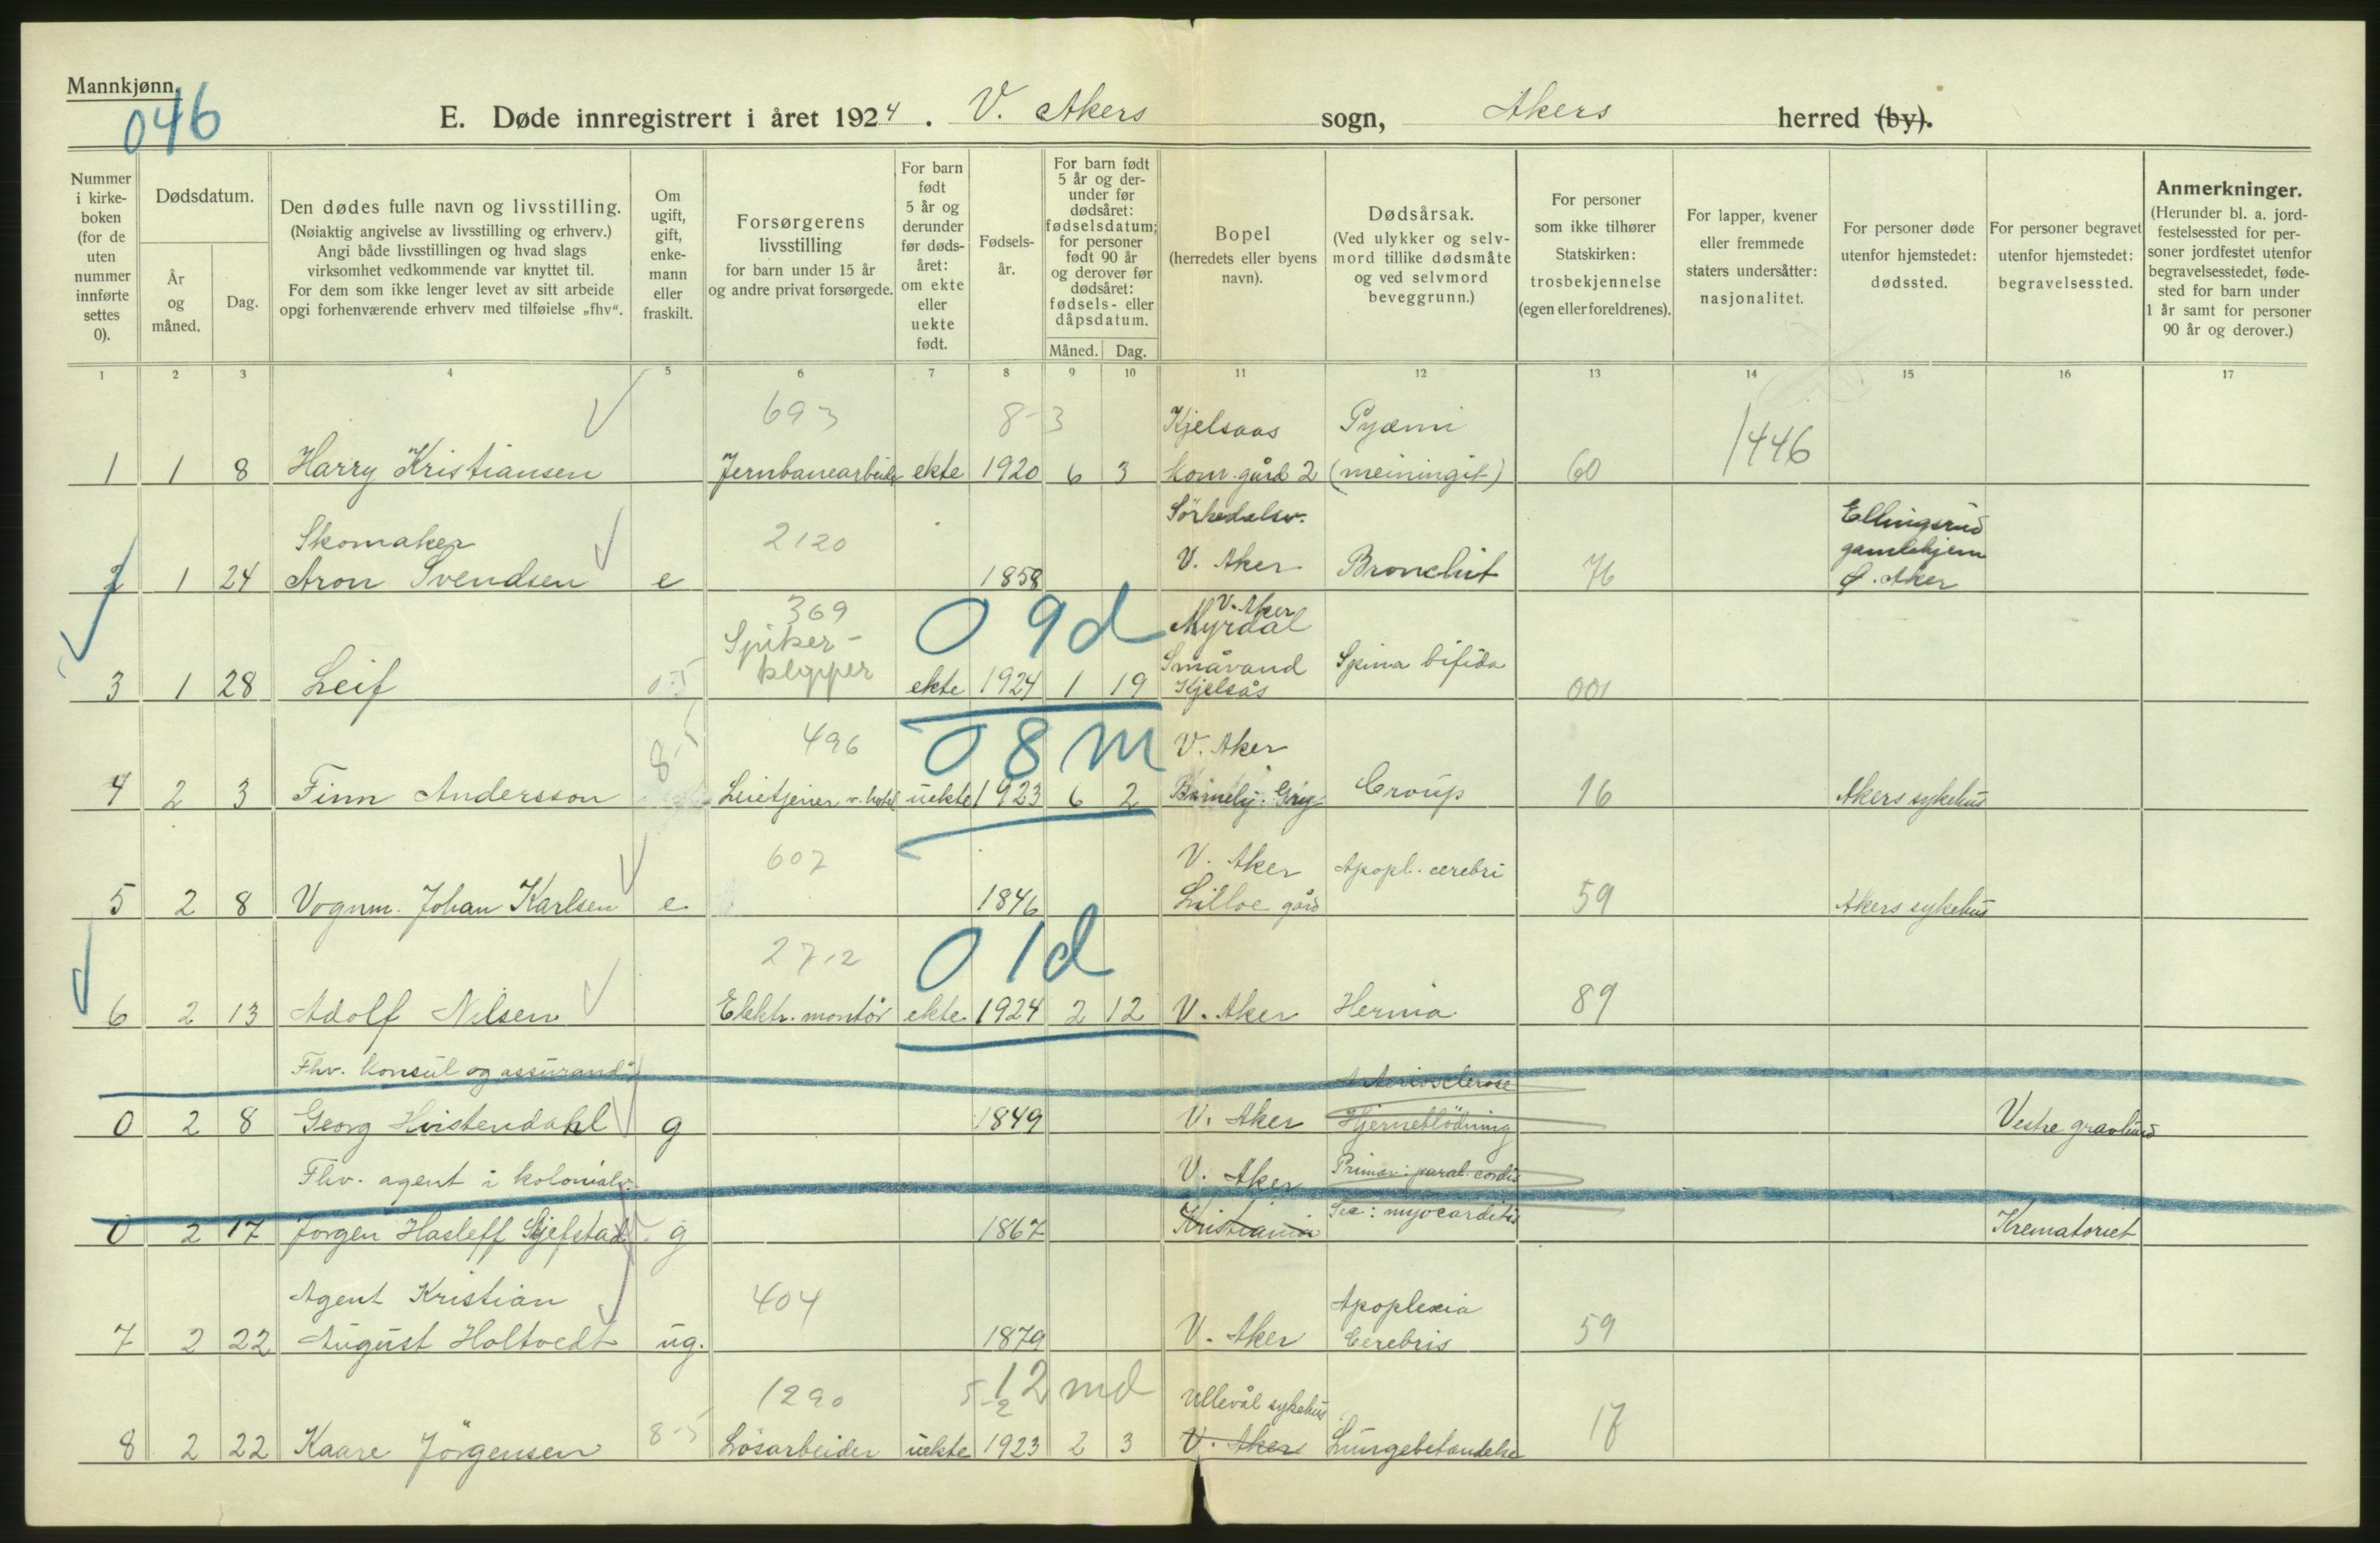 Mannkjønn.
046
E. Døde innregistrert i året 1924. V. Akers sogn, Akers herred (by).
Nummer i kirkeboken (for de uten nummer innførte settes 0).
Dødsdatum.
År og måned.
Dag.
Den dødes fulle navn og livsstilling.
(Nøiaktig angivelse av livsstilling og erhverv.)
Angi både livsstillingen og hvad slags
virksomhet vedkommende var knyttet til.
For dem som ikke lenger levet av sitt arbeide
opgi forhenværende erhverv med tilføielse „fhv“.
Om ugift, gift, enkemann eller fraskilt.
Forsørgerens livsstilling
for barn under 15 år
og andre privat forsørgede.
For barn født 5 år og derunder før dødsåret: om ekte eller uekte født.
Fødselsår.
For barn født 5 år og derunder før dødsåret: fødselsdatum; for personer født 90 år og derover før dødsåret: fødsels- eller dåpsdatum.
Måned. Dag.
Bopel
(herredets eller byens navn).
Dødsårsak.
(Ved ulykker og selvmord tillike dødsmåte og ved selvmord beveggrunn.)
For personer som ikke tilhører Statskirken: trosbekjennelse (egen eller foreldrenes).
For lapper, kvener eller fremmede staters undersåtter: nasjonalitet.
For personer døde utenfor hjemstedet: dødssted.
For personer begravet utenfor hjemstedet: begravelsessted.
Anmerkninger.
(Herunder bl. a. jordfestelsessted for personer jordfestet utenfor begravelsesstedet, fødested for barn under 1 år samt for personer 90 år og derover.)
1 2 3 4 5 6 7 8 9 10 11 12 13 14 15 16 17
693 8-3 Kjelsaas Pyæmi 1446
1 1 8 Harry Kristiansen Jernbanearbeider ekte 1920 6 3 kom. gård 2 (meiningit) 60
Skomaker 2120 Sörkedalsv. Ellingsrud gamlehjem
2 1 24 Aron Svendsen e 1858 V. Aker Bronchit 76 Ø. Aker
369 09d V. Aker Myrdal
Spiker-klipper Småvand Spina bifida
3 1 28 Leif ekte 1924 1 19 Kjelsås 001
8-5 496 08m V. Aker
4 2 3 Finn Andersson Leietjener v. hotel uekte 1923 6 2 Croup 16 Akers sykehus
607 V. Aker Apopl. cerebri
5 2 8 Vognm. Johan Karlsen e. 1846 Lilloe gård 59 Akers sykehus
2712 01d
6 2 13 Adolf Nilsen Elektr. montör ekte 1924 2 12 V. Aker Hernia 89
Fhv. konsul og assurandör Arteriosclerose
0 2 8 Georg Hvistendahl g 1849 V. Aker Hjerneblödning Vestre gravlund
Fhv. agent i kolonialv. V. Aker Primær: paral. cordis
0 2 17 Jörgen Hasleff Skjefstad g 1867 Kristiania Sec: myocarditis Krematoriet
Agent Kristian 404 Apoplexia
7 2 22 August Holtvedt ug. 1879 V. Aker Cerebris 59
1290 5-2 12 md Ullevål sykehus
8 2 22 Kaare Jörgensen 8-5 Lösarbeider uekte 1923 2 3 V. Aker Lungebetændelse 17